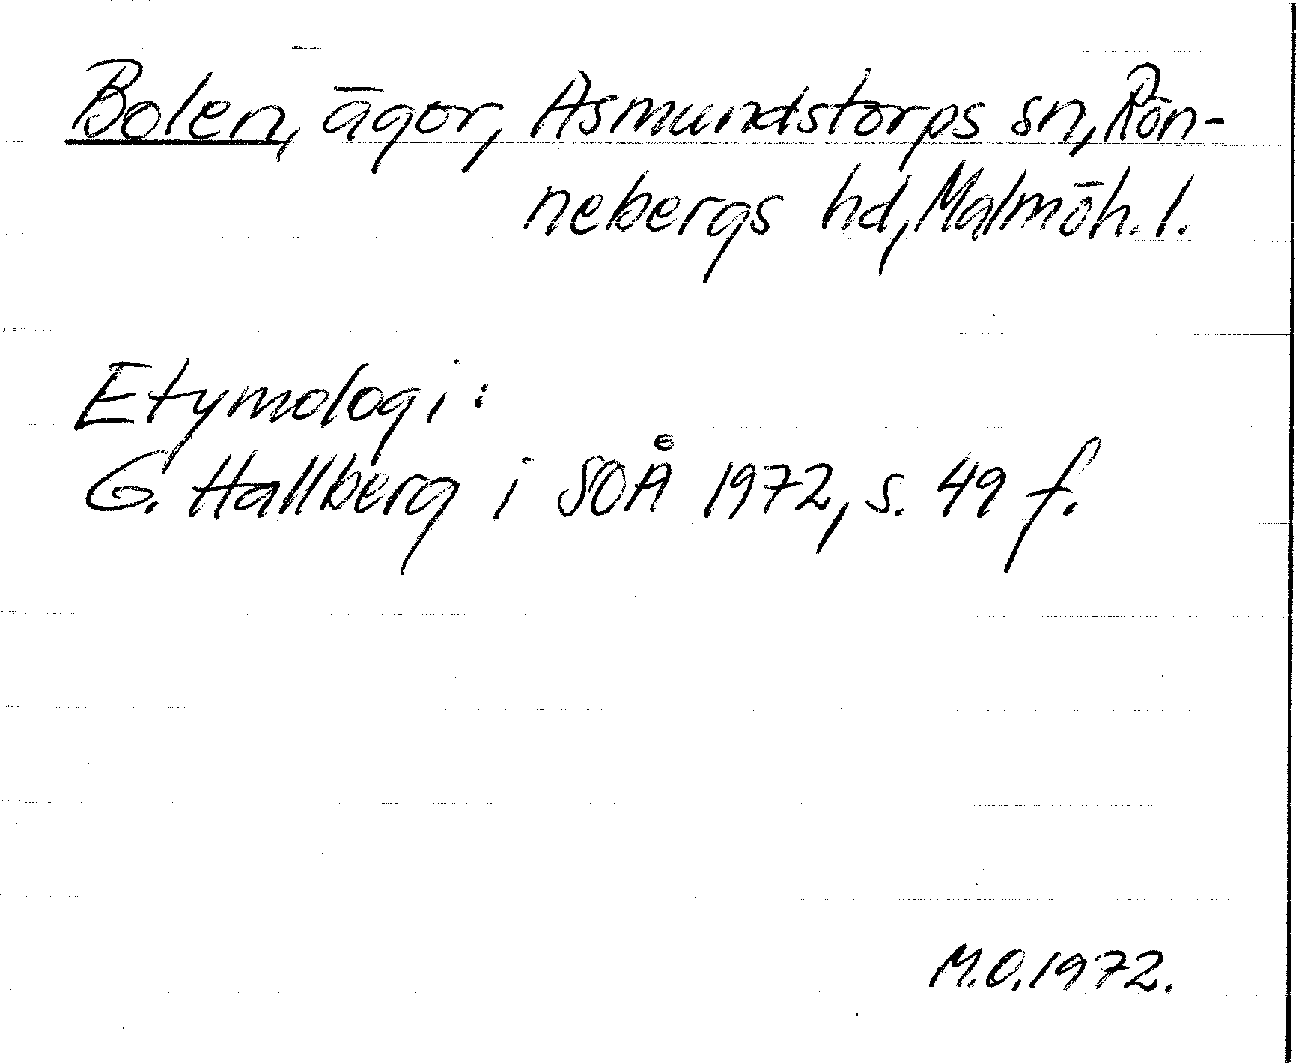 Bolen, ägor, Asmundstorps sn, Rön-
nebergs hd, Malmöh. l.
Etymologi:
G. Hallberg i SOÅ 1972, s. 49 f.
M.O. 1972.